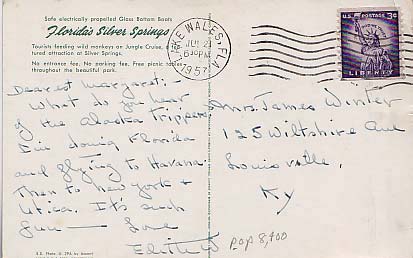 Safe electrically propelled Glass Bottom Boats
Florida's Silver Springs
Tourists feeding wild monkeys on Jungle Cruise,
tured attraction at Silver Springs.
No entrance fee. No parking fee. Free picnic tables
throughout the beautiful park.
LAKE WALES, FLA.
JUL 2
630PM
1957
U.S. POSTAGE 3¢
LIBERTY
Dearest Margaret:
What do you hear
of the Alaska trippers
I'm doing Florida
and flying to Havana
Then to New York &
Utica. It's such
fun — Love
Edith W
Mrs. James Winter
125 Wiltshire Ave
Louisville,
Ky
pop 8,400